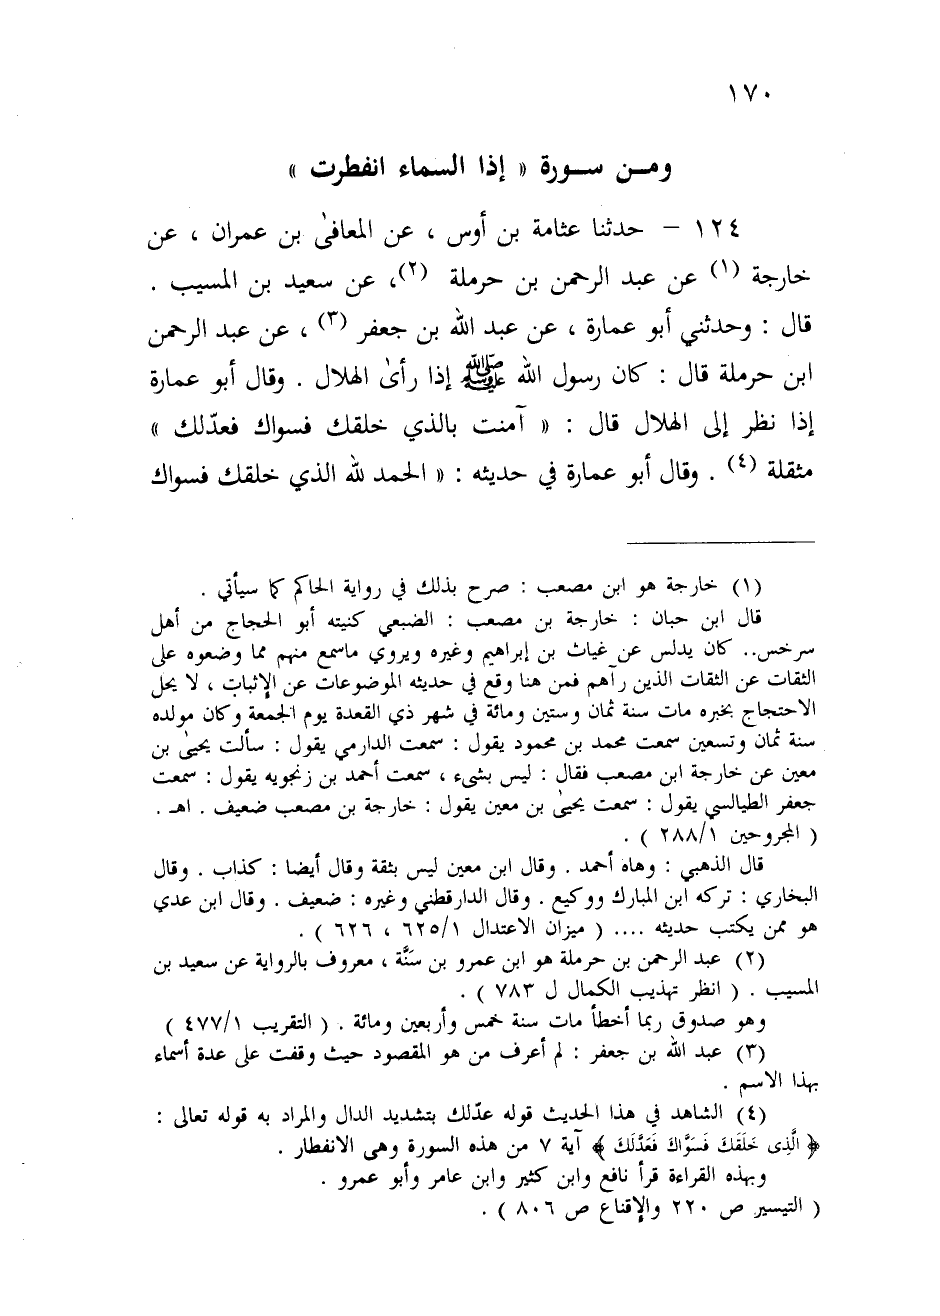 ١٧٠
ومن سورة « إذا السماء انفطرت »
١٢٤ – حدثنا عثامة بن أوس ، عن المعافىٰ بن عمران ، عن
خارجة (١) عن عبد الرحمن بن حرملة (٢)، عن سعيد بن المسيب .
قال : وحدثني أبو عمارة ، عن عبد الله بن جعفر (٣) ، عن عبد الرحمن
ابن حرملة قال : كان رسول الله ﷺ إذا رأىٰ الهلال . وقال أبو عمارة
إذا نظر إلى الهلال قال : « آمنت بالذي خلقك فسواك فعدّلك »
مثقلة (٤) . وقال أبو عمارة في حديثه : « الحمد لله الذي خلقك فسواك
(١) خارجة هو ابن مصعب : صرح بذلك في رواية الحاكم كما سيأتي .
قال ابن حبان : خارجة بن مصعب : الضبعي كنيته أبو الحجاج من أهل
سرخس.. كان يدلس عن غياث بن إبراهيم وغيره ويروي ماسمع منهم مما وضعوه على
الثقات عن الثقات الذين رآهم فمن هنا وقع في حديثه الموضوعات عن الإثبات ، لا يحل
الاحتجاج بخبره مات سنة ثمان وستين ومائة في شهر ذي القعدة يوم الجمعة وكان مولده
سنة ثمان وتسعين سمعت محمد بن محمود يقول : سمعت الدارمي يقول : سألت يحيىٰ بن
معين عن خارجة ابن مصعب فقال : ليس بشىء ، سمعت أحمد بن زنجويه يقول : سمعت
جعفر الطيالسي يقول : سمعت يحيىٰ بن معين يقول : خارجة بن مصعب ضعيف . اهـ .
( المجروحين ٢٨٨/١ ) .
قال الذهبي : وهاه أحمد . وقال ابن معين ليس بثقة وقال أيضا : كذاب . وقال
البخاري : تركه ابن المبارك ووكيع . وقال الدارقطني وغيره : ضعيف . وقال ابن عدي
هو ممن يكتب حديثه .... ( ميزان الاعتدال ٦٢٥/١ ، ٦٢٦ ) .
(٢) عبد الرحمن بن حرملة هو ابن عمرو بن سَنَّة ، معروف بالرواية عن سعيد بن
المسيب . ( انظر تهذيب الكمال ل ٧٨٣ ) .
وهو صدوق ربما أخطأ مات سنة خمس وأربعين ومائة . ( التقريب ٤٧٧/١ )
(٣) عبد الله بن جعفر : لم أعرف من هو المقصود حيث وقفت على عدة أسماء
بهذا الاسم .
(٤) الشاهد في هذا الحديث قوله عدّلك بتشديد الدال والمراد به قوله تعالى :
﴿ الَّذِى خَلَقَكَ فَسَوَّاكَ فَعَدَّلَكَ ﴾ آية ٧ من هذه السورة وهى الانفطار .
وبهذه القراءة قرأ نافع وابن كثير وابن عامر وأبو عمرو .
( التيسير ص ٢٢٠ والإقناع ص ٨٠٦ ) .